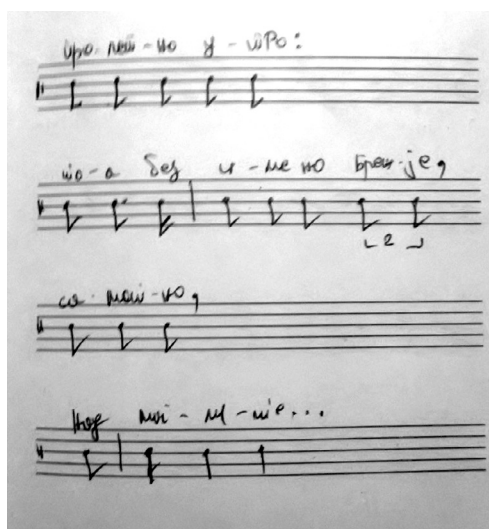 про-лет-но у-тро:
то-а без и-ме-но Бреж-је,
са-мот-но,
под маг-ли-те...
2